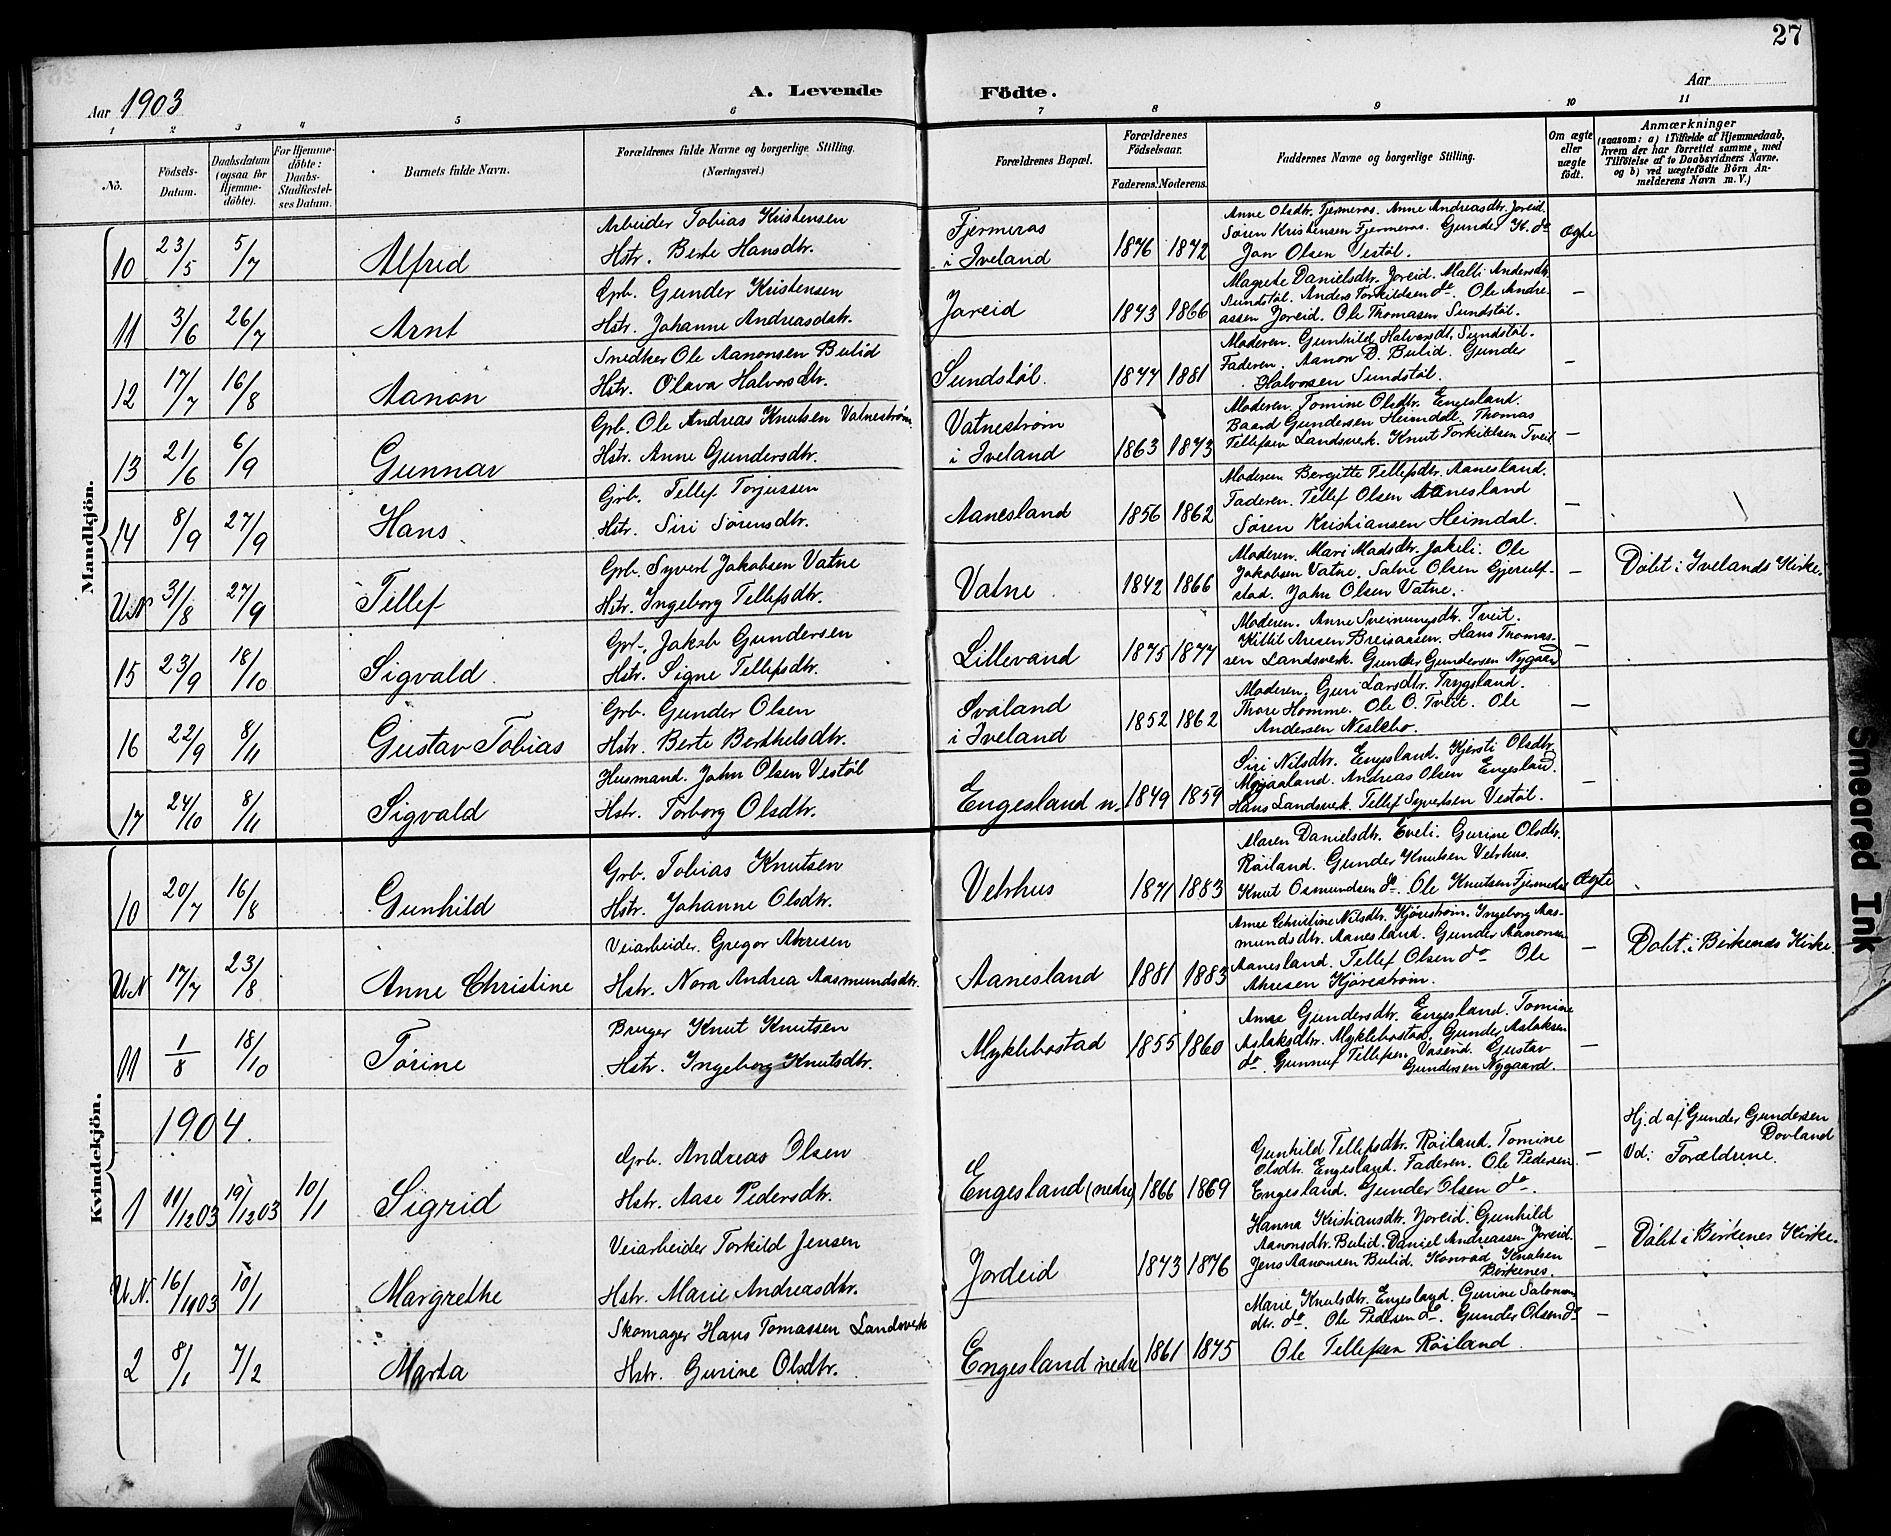 27
Aar 1903
A. Levende Födte.
Aar
1 2 3 4 5 6 7 8 9 10 11
No.
Födsels-Datum.
Daabsdatum (ogsaa for Hjemme-döbte).
For Hjemme-döbte: Daabs-Stadfæstel-ses Datum.
Barnets fulde Navn.
Forældrenes fulde Navne og borgerlige Stilling. (Næringsvei.)
Forældrenes Bopæl.
Forældrenes Födselsaar.
Faderens. Moderens.
Faddernes Navne og borgerlige Stilling.
Om ægte eller uægte födt.
Anmærkninger
(saasom: a) i Tilfælde af Hjemmedaab, hvem der har forrettet samme, med Tilföielse af to Daabsvidners Navne, og b) ved uægtefödte Börn An-melderens Navn m. V.)
Mandkjön.
10 23/5 5/7 Alfred
Arbeider Tobias Kristensen
Hstr. Berte Hansdtr.
Fjermeros
i Iveland 1876 1872
Anne Olsdtr. Fjermeros. Anne Andreasdtr. Joreid.
Sören Kristensen Fjermeros. Gunder K. do
Jon Olsen Vestøl.
Ægte
11 3/6 26/7 Arnt
Grb. Gunder Kristensen
Hstr. Johanne Andreasdtr.
Joreid 1843 1866
Magrete Danielsdtr. Joreid. Malli Andersdtr.
Sundstøl. Anders Torkildsen do. Ole Andre-
assen Joreid. Ole Thomasen Sundstøl.
—
12 17/7 16/8 Aanon
Snedker Ole Aanonsen Bulid
Hstr. Olava Halvorsdtr.
Sundstøl. 1877 1881
Moderen. Gunhild Halvorsdt. Sundstøl.
Faderen. Aanon D. Bulid. Gunder
Halvorsen Sundstøl.
—
13 21/6 6/9 Gunnar
Grb. Ole Andreas Knutsen Vatnestrøm.
Hstr. Anne Gundersdtr.
Vatnestrøm
i Iveland 1863 1873
Moderen. Tomine Olsdtr. Engesland.
Baard Gundersen Heimdal. Thomas
Tellefsen Landsverk. Knut Torkildsen Tveit
—
14 8/9 27/9 Hans
Grb. Tellef Torjussen
Hstr. Siri Sörensdtr.
Aanesland 1856 1862
Moderen Bergitte Tellefsdtr. Aanesland.
Faderen. Tellef Olsen Aanesland
Søren Kristiansen Heimdal.
—
U.N 3/8 27/9 Tellef
Grb. Syvert Jakobsen Vatne
Hstr. Ingeborg Tellefsdtr.
Vatne 1842 1866
Moderen. Mari Madsdtr. Jokeli. Ole
Jakobsen Vatne. Salve Olsen Gjerulf-
stad. John Olsen Vatne.
—
Døbt i Ivelands Kirke.
15 23/9 18/10 Sigvald.
Grb. Jakob Gundersen
Hstr. Signe Tellefsdtr.
Lillevand 1875 1877
Moderen. Anne Sveinungsdtr. Tveit.
Kittil Aresen Breisaasen. Hans Thomas-
sen Landsverk. Gunder Gundersen Nygaard
—
16 22/9 8/11 Gustav Tobias
Grb. Gunder Olsen
Hstr. Berte Berthelsdtr.
Svaland
i Iveland 1852 1862
Moderen. Guri Larsdtr. Trygsland.
Thore Homme. Ole O. Tveit. Ole
Andersen Neslebo.
—
17 24/10 8/11 Sigvald
Husmand. John Olsen Vestøl
Hstr. Torborg Olsdtr.
Engesland n. 1849 1859
Siri Nilsdtr. Engesland. Kjersti Olsdtr.
Mosjaaland. Andreas Olsen Engesland.
Hans Landsverk. Tellef Syvertsen Vestøl.
—
Kvindekjön.
10 20/7 16/8 Gunhild
Grb. Tobias Knutsen
Hstr. Johanne Olsdtr.
Vetrhus 1871 1883
Maren Danielsdtr. Eveli. Gurine Olsdtr.
Røiland. Gunder Knutsen Vetrhus.
Knut Osmundsen do. Ole Knutsen Fjermedal
Ægte
U.N 17/7 23/8 Anne Christine
Veiarbeider. Gregor Akresen
Hstr. Nora Andrea Aasmundsdtr.
Aanesland 1881 1883
Anne Christine Nilsdtr. Kjørestrøm. Ingeborg Aas-
mundsdtr. Aanesland. Gunder Aanonsen
Aanesland. Tellef Olsen do Ole
Akresen Kjørestrøm.
—
Døbt i Birkenes Kirke.
11 1/8 18/10 Tørine
Bruger Knut Knutsen
Hstr. Ingeborg Knutsdtr.
Myklebostad 1855 1860
Anne Gundersdtr. Engesland. Tomine
Aslaksdtr. Myklebostad. Gunder Aslaksen
do. Gunnuf Tellefsen Vasend. Gustav
Gundersen Nygaard.
—
1904.
1 11/12 03 19/12 03 10/1 Sigrid
Grb. Andreas Olsen
Hstr. Aase Pedersdtr.
Engesland (nedre) 1866 1869
Gunhild Tellefsdtr. Røiland. Tomine
Olsdtr. Engesland. Faderen. Ole Pedersen
Engesland. Gunder Olsen do.
—
Hj. d af Gunder Gundersen
Dovland
Vd: Forældrene.
U.N. 16/11 03 10/1 Margrethe
Veiarbeider Torkild Jensen
Hstr. Marie Andreasdtr.
Jordeid 1873 1876
Hanna Kristiansdtr. Joreid. Gunhild
Aanonsdtr. Bulid. Daniel Andreassen Joreid.
Jens Aanonsen Bulid. Konrad Knutsen
Birkenes.
—
Døbt i Birkenes Kirke.
2 8/1 7/2 Marta
Skomager Hans Tomassen Landsverk
Hstr. Gurine Olsdtr.
Engesland nedre 1861 1875
Marie Knutsdtr. Engesland. Gurine Salomon
dtr. do. Ole Pedersen do. Gunder Olsen do
Ole Tellefsen Røiland.
—
Smeared Ink